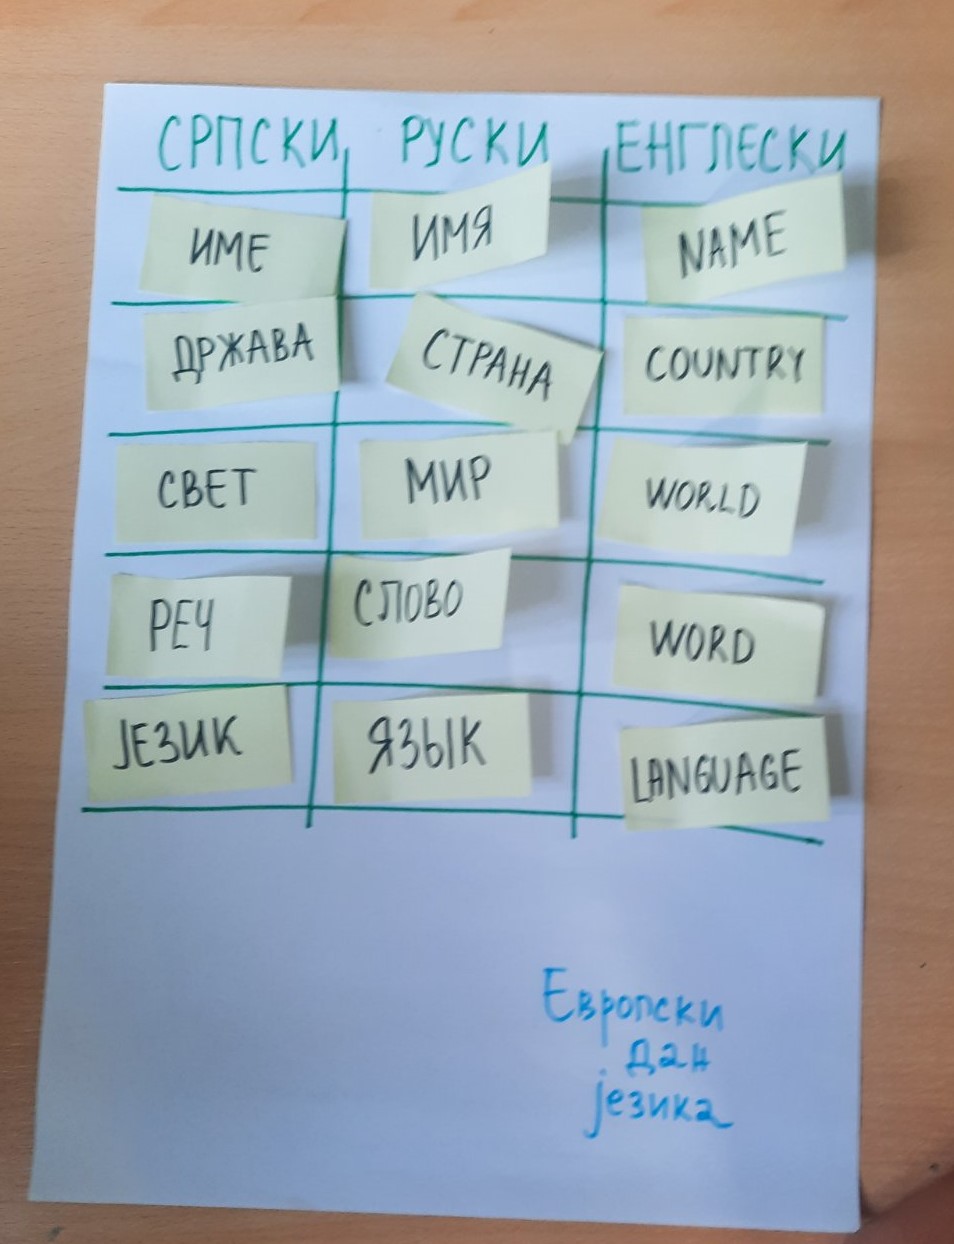 СРПСКИ РУСКИ ЕНГЛЕСКИ
ИМЕ ИМЯ NAME
ДРЖАВА СТРАНА COUNTRY
СВЕТ МИР WORLD
РЕЧ СЛОВО WORD
ЈЕЗИК ЯЗЫК LANGUAGE
Европски
дан
језика